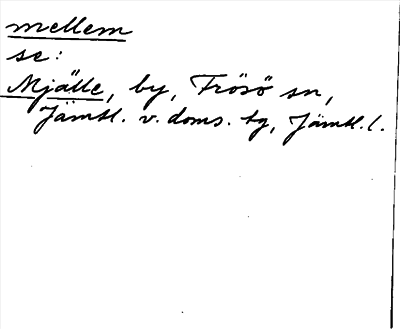 mellem
se:
Mjälle, by, Frösö sn,
Jämtl. v. doms. tg, Jämtl. l.